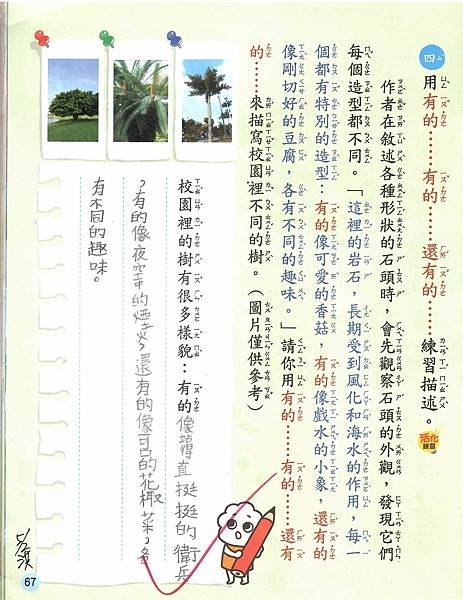 四 用有的……有的……還有的……練習描述。
活化練習
作者在敘述各種形狀的石頭時，會先觀察石頭的外觀，發現它們
每個造型都不同。「這裡的岩石，長期受到風化和海水的作用，每一
個都有特別的造型：有的像可愛的香菇，有的像戲水的小象，還有的
像剛切好的豆腐，各有不同的趣味。」請你用有的……有的……還有
的……來描寫校園裡不同的樹。（圖片僅供參考）
校園裡的樹有很多樣貌：有的像站得直挺挺的衛兵
，有的像夜空中的煙火，還有的像可口的花椰菜，各
有不同的趣味。
67